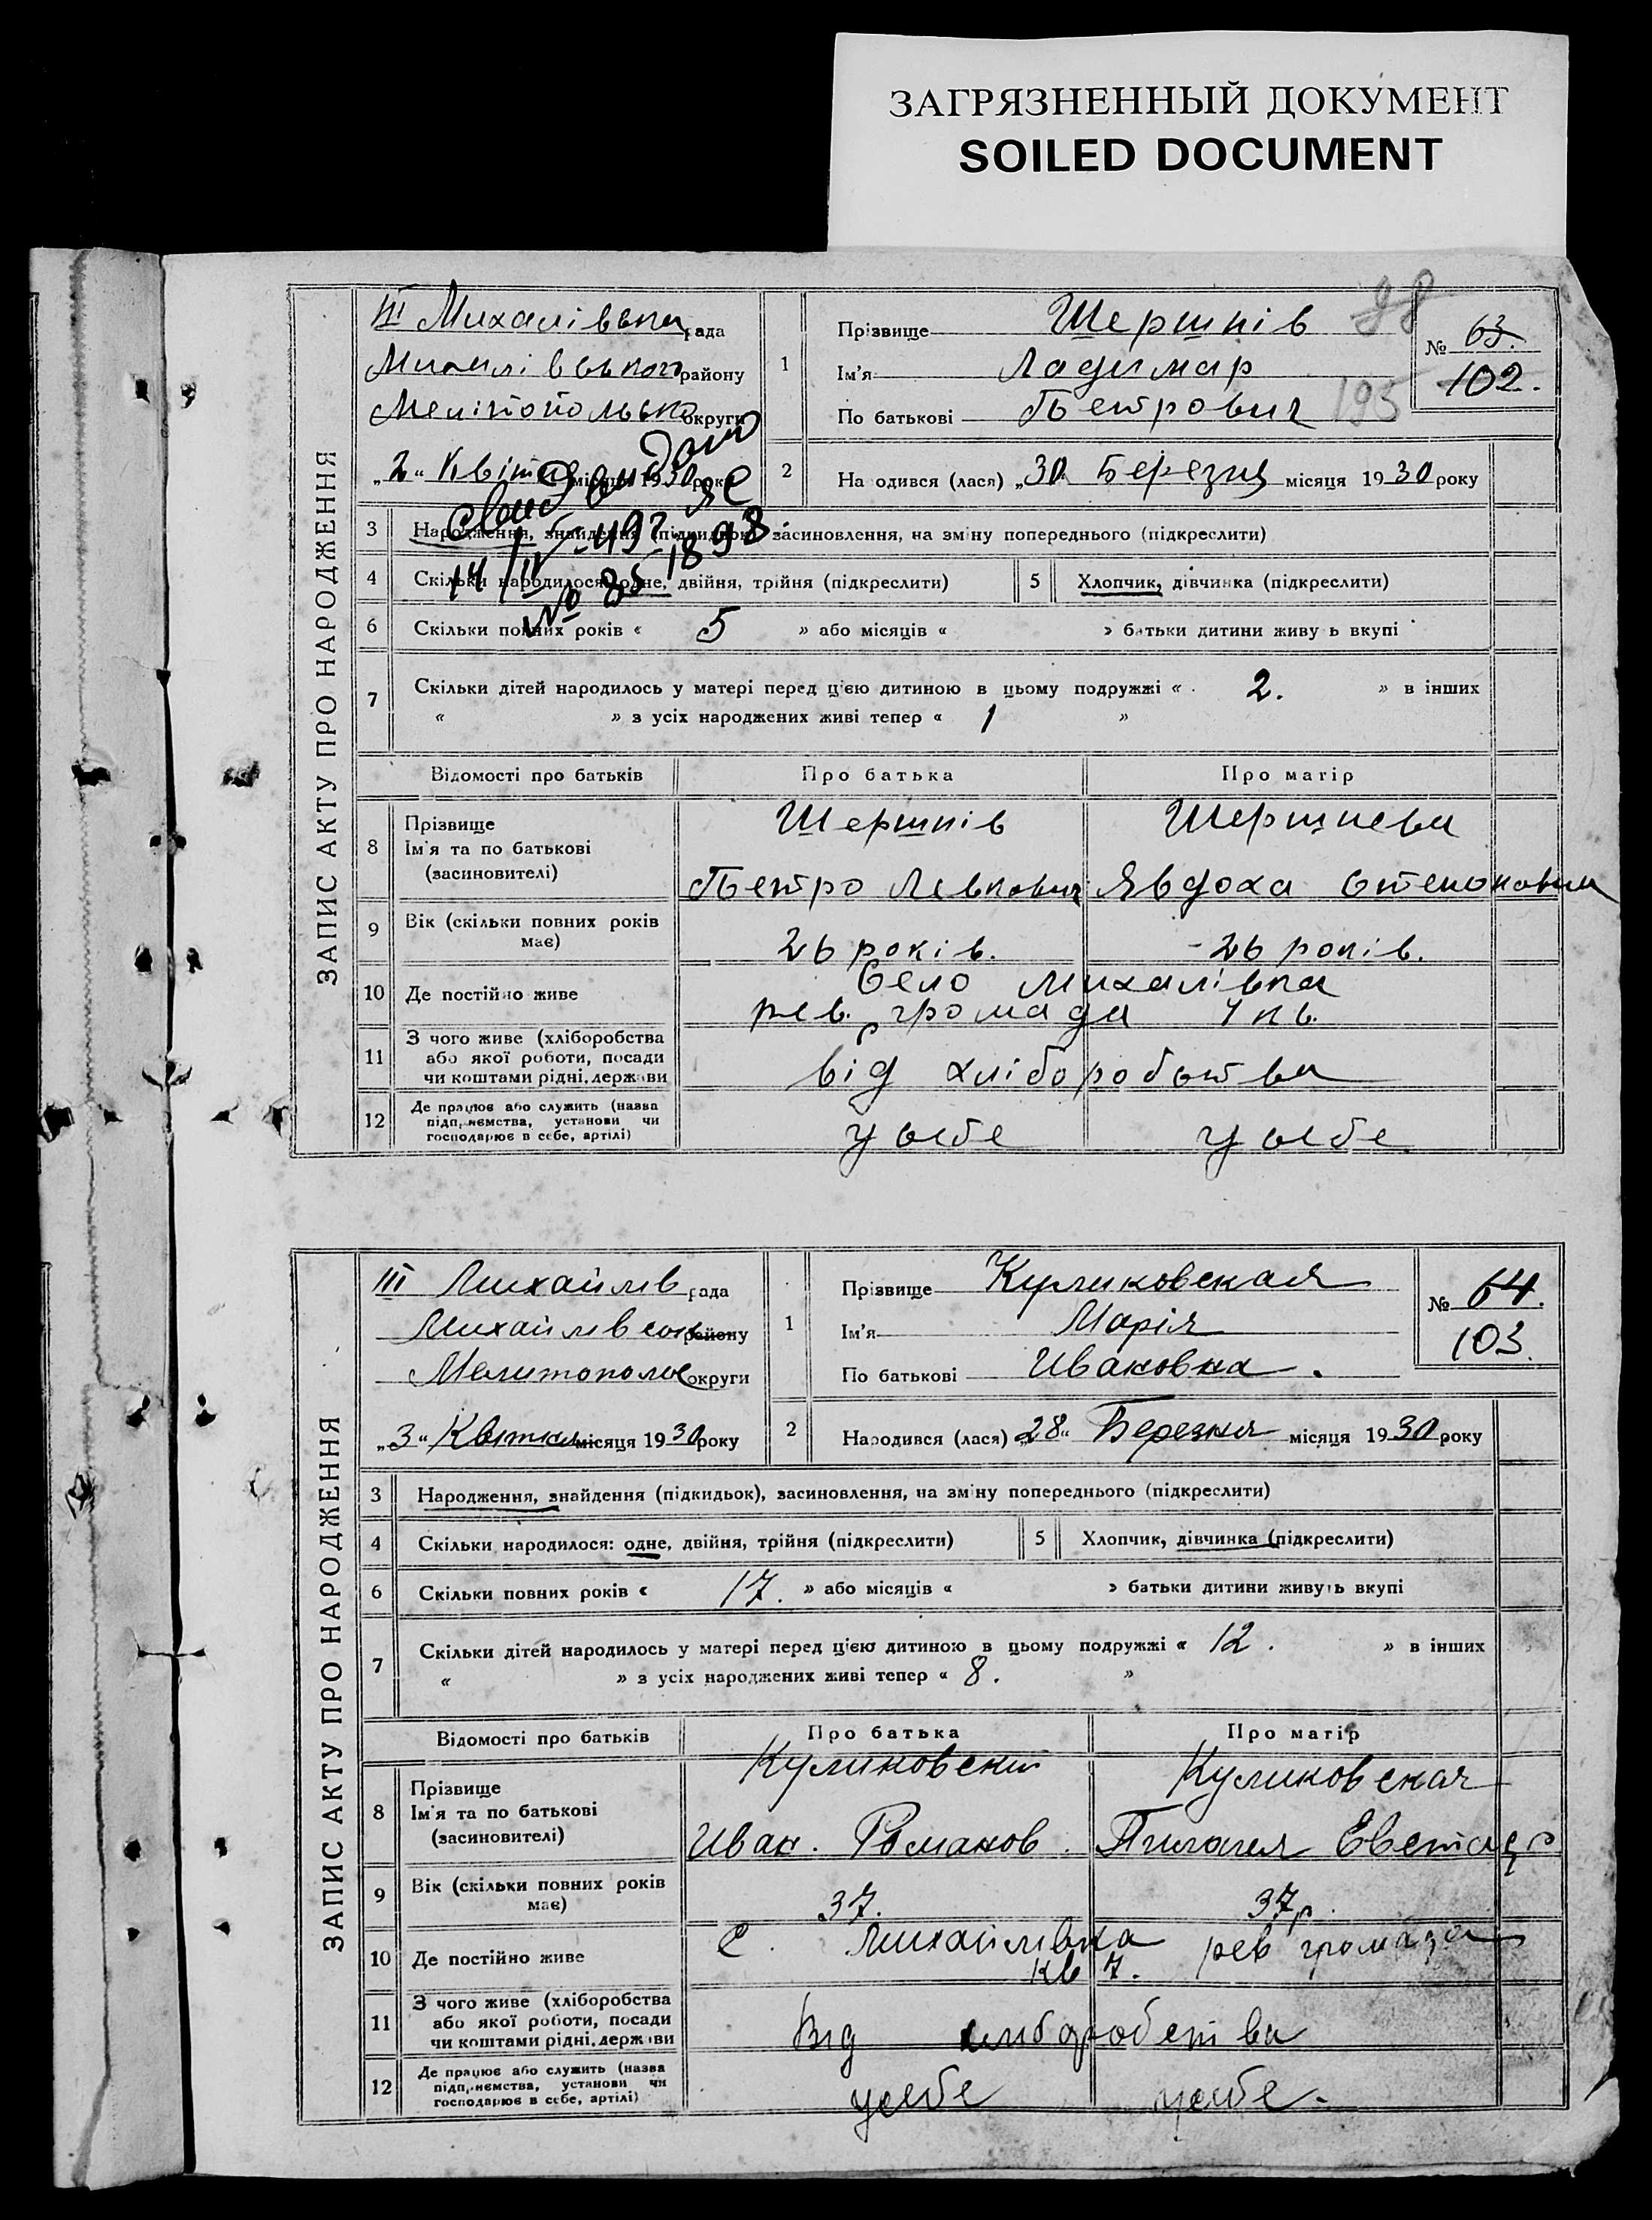 ЗАГРЯЗНЕННЫЙ ДОКУМЕНТ
SOILED DOCUMENT
ЗАПИС АКТУ ПРО НАРОДЖЕННЯ
III Михалівська рада
Михалівського району
Мелітопольсько округи
„2“ Квітня місяця 1930 року
1
Прізвище Шершнів
Ім'я Ладимар
По батькові Петрович
98
195
№ 63.
102.
2
На одився (лася) „30 Березня місяця 1930 року
14/IV-49 г
№ 85
3 Народження, знайдення (підкидьок), засиновлення, на зміну попереднього (підкреслити)
4 Скільки народилося: одне, двійня, трійня (підкреслити)
5 Хлопчик, дівчинка (підкреслити)
6 Скільки повних років « 5 » або місяців « » батьки дитини живу ь вкупі
7 Скільки дітей народилось у матері перед цією дитиною в цьому подружжі « 2. » в інших
« » з усіх народжених живі тепер « 1 »
Відомості про батьків Про батька Про матір
8 Прізвище
Ім'я та по батькові
(засиновителі)
Шершнів Шершнева
Петро Левкович Явдоха Степановна
9 Вік (скільки повних років
має)
26 років. 26 років.
10 Де постійно живе
Село Михалівка
рев. громада 7 кв.
11 З чого живе (хліборобства
або якої роботи, посади
чи коштами рідні, держави
від хліборобства
12 Де працює або служить (назва
підприємства, установи чи
господарює в себе, артілі)
у себе у себе
ЗАПИС АКТУ ПРО НАРОДЖЕННЯ
III Михайлів рада
Михайлівсок району
Мелитополь округи
„3“ Квітня місяця 1930 року
1
Прізвище Куликовская
Ім'я Марія
По батькові Ивановна.
№ 64.
103.
2
Народився (лася) „28“ Березня місяця 1930 року
3 Народження, знайдення (підкидьок), засиновлення, на зміну попереднього (підкреслити)
4 Скільки народилося: одне, двійня, трійня (підкреслити)
5 Хлопчик, дівчинка (підкреслити)
6 Скільки повних років « 17. » або місяців « » батьки дитини живуть вкупі
7 Скільки дітей народилось у матері перед цією дитиною в цьому подружжі « 12. » в інших
« » з усіх народжених живі тепер « 8. »
Відомості про батьків Про батька Про матір
8 Прізвище
Ім'я та по батькові
(засиновителі)
Куликовский Куликовская
Иван. Романов.
9 Вік (скільки повних років
має)
37. 37 р.
10 Де постійно живе
с. Михайлівка рев громада
кв 7.
11 З чого живе (хліборобства
або якої роботи, посади
чи коштами рідні, держави
Від хліборобства
12 Де працює або служить (назва
підприємства, установи чи
господарює в себе, артілі)
у себе у себе.